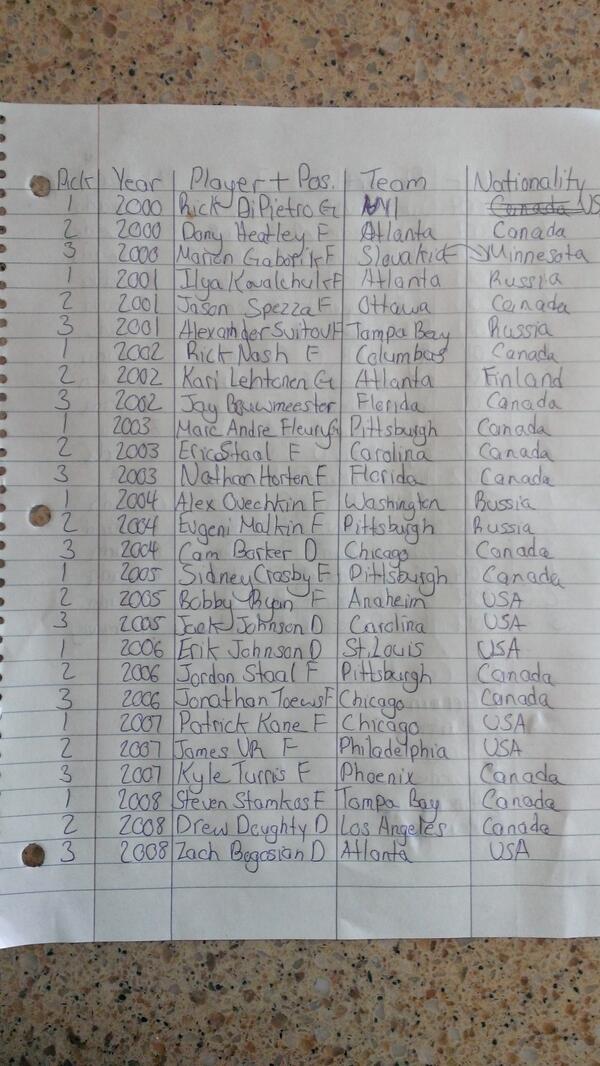 Pick Year Player + Pos. Team Nationality
1 2000 Rick DiPietro G NYI Canada US
2 2000 Dany Heatley F Atlanta Canada
3 2000 Marian Gaborik F Slovakia Minnesota
1 2001 Ilya Kovalchuk F Atlanta Russia
2 2001 Jason Spezza F Ottawa Canada
3 2001 Alexander Svitov F Tampa Bay Russia
1 2002 Rick Nash F Columbus Canada
2 2002 Kari Lehtonen G Atlanta Finland
3 2002 Jay Bouwmeester Florida Canada
1 2003 Marc Andre Fleury G Pittsburgh Canada
2 2003 Eric Staal F Carolina Canada
3 2003 Nathan Horten F Florida Canada
1 2004 Alex Ovechkin F Washington Russia
2 2004 Evgeni Malkin F Pittsburgh Russia
3 2004 Cam Barker D Chicago Canada
1 2005 Sidney Crosby F Pittsburgh Canada
2 2005 Bobby Ryan F Anaheim USA
3 2005 Jack Johnson D Carolina USA
1 2006 Erik Johnson D St. Louis USA
2 2006 Jordan Staal F Pittsburgh Canada
3 2006 Jonathan Toews F Chicago Canada
1 2007 Patrick Kane F Chicago USA
2 2007 James VR F Philadelphia USA
3 2007 Kyle Turris F Phoenix Canada
1 2008 Steven Stamkos F Tampa Bay Canada
2 2008 Drew Doughty D Los Angeles Canada
3 2008 Zach Bogosian D Atlanta USA